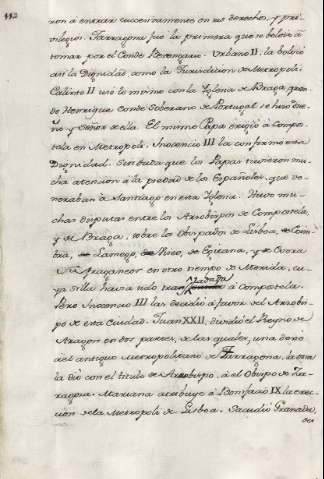 112
ron a entrar sucesivamente en sus derechos, y pri-
vilegios. Tarragona fue la primera que se bolvió á
tomar por el Conde Berenguer. Urbano II. la bolvió
asi la Dignidad como la Jurisdicion de Metropoli.
Calixto II usó lo mismo con la Iglesia de Braga, quan-
do Henrique Conde Soberano de Portugal se hizo due-
ño y Señor de ella. El mismo Papa erigió á Compos-
tela en Metropoli. Inocencio III la confirmo esta
Dignidad. Sin duda que los Papas tuvieron mu-
cha atencion á la piedad de los Españoles, que ve-
neraban á Santiago en esta Iglesia. Huvo mu-
chas disputas entre los Arzobispos de Compostela,
y de Braga, sobre los Obispados de Lisboa, de Coim-
bra, de Lamego, de Viseo, de Egitana, y de Evora
Sufraganeos en otro tiempo de Merida, cu-
ya Silla havia sido trasladada á Compostela.
Pero Inocencio III las decidió á favor del Arzobis-
po de esta Ciudad. Juan XXII, dividió el Reyno de
Aragon en dos partes, de las quales, una dexó
al antiguo Metropolitano de Tarragona, la otra
la dió con el titulo de Arzobispo, á el Obispo de Za-
ragoza. Mariana atribuye á Bonifacio IX la erec-
cion de la Metropoli de Lisboa.